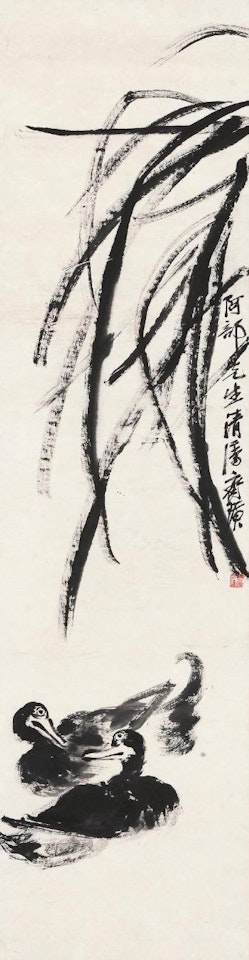 阿部先生清属 齐璜